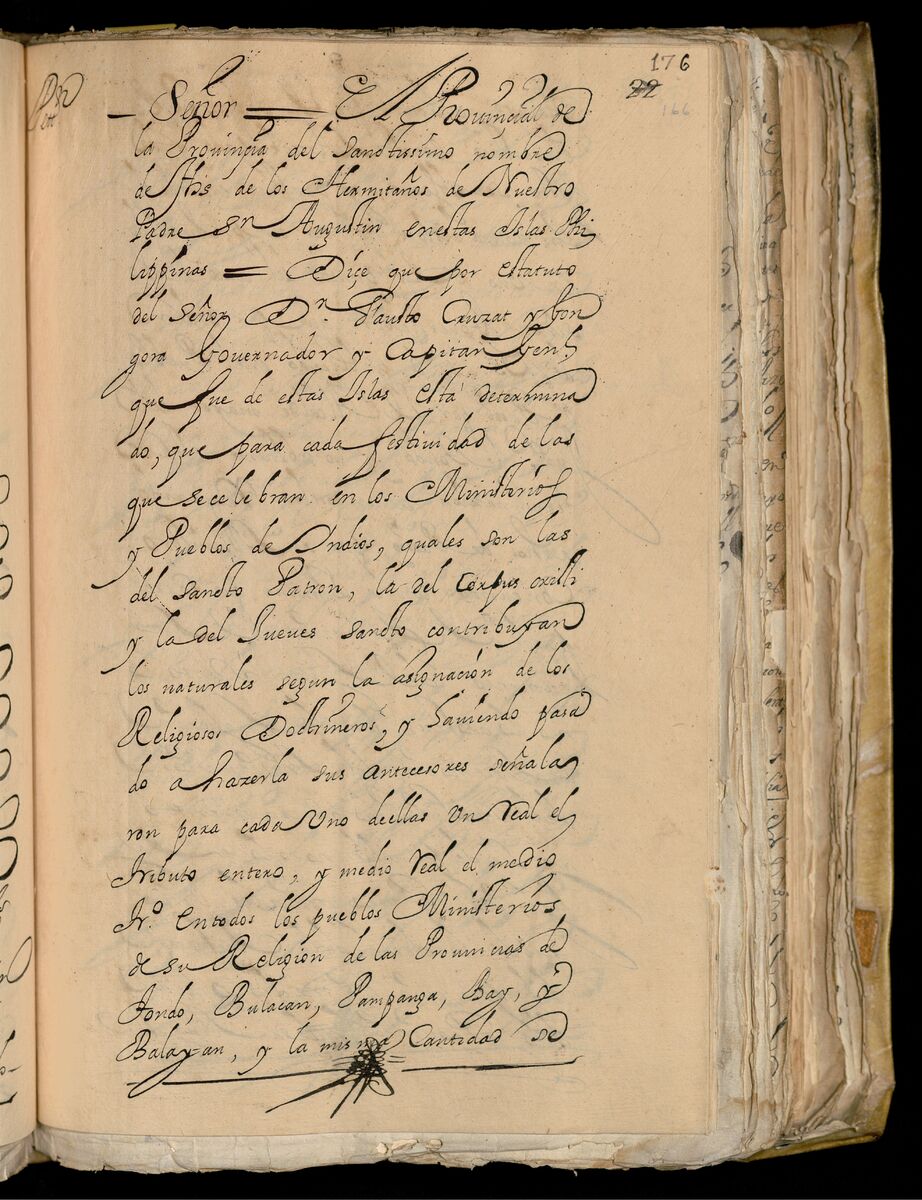 176
22
166
Señor = El Provinçial de
la Provinçia del sanctissimo nombre
de Jhs de los Hermitaños de Nuestro
Padre Sn Augustin en estas Islas Phi
lippinas = Diçe que por estatuto
del señor Dn. Fausto Cruzat y Gon
gora Governador y Capitan Genl
que fue de estas Islas està determina
do, que para cada festividad de las
que se celebran en los Ministerios
y Pueblos de Yndios, quales son las
del sancto Patron, la del Corpus cristi
y la del Jueves sancto contribuyan
los naturales segun la asignaçión de los
Religiosos Doctrineros, y haviendo pasa
do a hazerla sus antecesores señala,
ron para cada Uno de ellas Un Real el
tributo entero, y medio Real el medio
tro. en todos los pueblos Ministerios
de su Religion de las Provincias de
Tondo, Bulacan, Pampanga, Bay, y
Balayan, y la misma Cantidad se